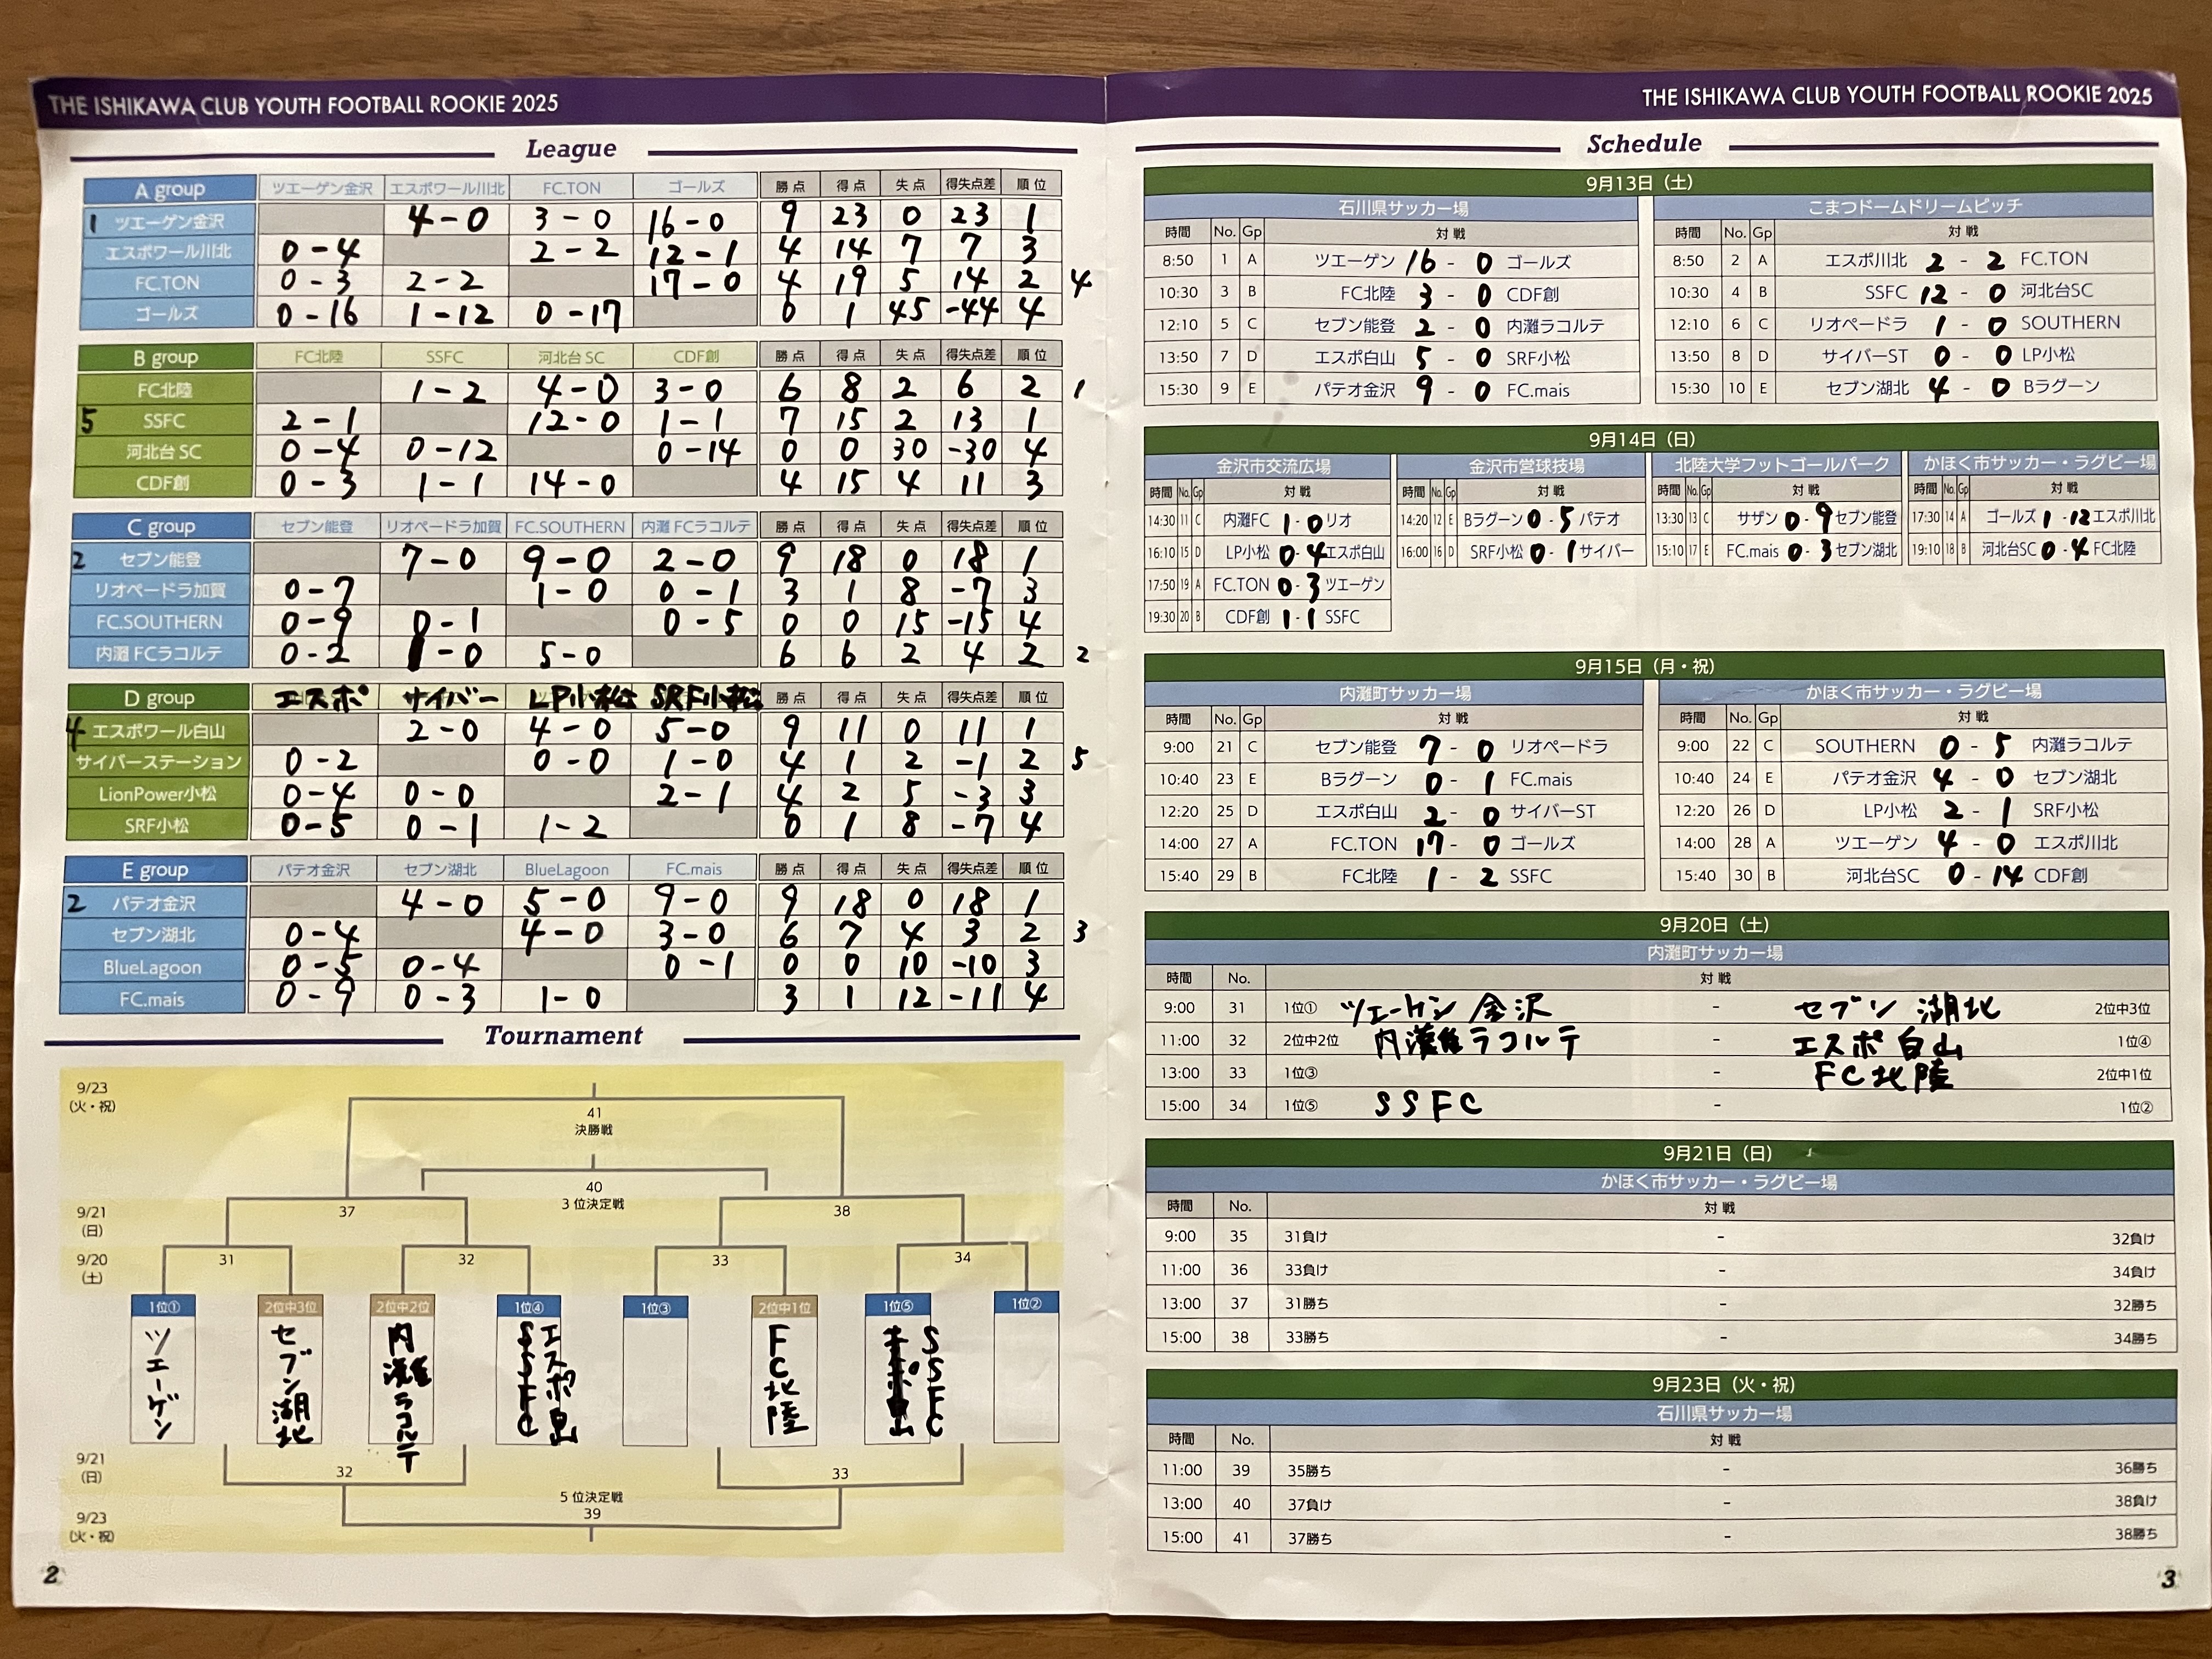 THE ISHIKAWA CLUB YOUTH FOOTBALL ROOKIE 2025
League
A group ツエーゲン金沢 エスポワール川北 FC.TON ゴールズ 勝点 得点 失点 得失点差 順位
1 ツエーゲン金沢 4-0 3-0 16-0 9 23 0 23 1
エスポワール川北 0-4 2-2 12-1 4 14 7 7 3
FC.TON 0-3 2-2 17-0 4 19 5 14 2 4
ゴールズ 0-16 1-12 0-17 0 1 45 -44 4
B group FC北陸 SSFC 河北台SC CDF創 勝点 得点 失点 得失点差 順位
FC北陸 1-2 4-0 3-0 6 8 2 6 2 1
5 SSFC 2-1 12-0 1-1 7 15 2 13 1
河北台SC 0-4 0-12 0-14 0 0 30 -30 4
CDF創 0-3 1-1 14-0 4 15 4 11 3
C group セブン能登 リオペードラ加賀 FC.SOUTHERN 内灘FCラコルテ 勝点 得点 失点 得失点差 順位
2 セブン能登 7-0 9-0 2-0 9 18 0 18 1
リオペードラ加賀 0-7 1-0 0-1 3 1 8 -7 3
FC.SOUTHERN 0-9 0-1 0-5 0 0 15 -15 4
内灘FCラコルテ 0-2 1-0 5-0 6 6 2 4 2 2
D group エスポ サイバー LP小松 SRF小松 勝点 得点 失点 得失点差 順位
4 エスポワール白山 2-0 4-0 5-0 9 11 0 11 1
サイバーステーション 0-2 0-0 1-0 4 1 2 -1 2 5
LionPower小松 0-4 0-0 2-1 4 2 5 -3 3
SRF小松 0-5 0-1 1-2 0 1 8 -7 4
E group パテオ金沢 セブン湖北 BlueLagoon FC.mais 勝点 得点 失点 得失点差 順位
2 パテオ金沢 4-0 5-0 9-0 9 18 0 18 1
セブン湖北 0-4 4-0 3-0 6 7 4 3 2 3
BlueLagoon 0-5 0-4 0-1 0 0 10 -10 3
FC.mais 0-9 0-3 1-0 3 1 12 -11 4
Tournament
9/23
(火・祝)
41
決勝戦
40
3位決定戦
9/21
(日)
37 38
9/20
(土)
31 32 33 34
1位① 2位中3位 2位中2位 1位④ 1位③ 2位中1位 1位⑤ 1位②
ツエーゲン
セブン湖北
内灘ラコルテ
SSFC
エスポ白山
FC北陸
SSFC
9/21
(日)
32 33
5位決定戦
39
9/23
(火・祝)
2
THE ISHIKAWA CLUB YOUTH FOOTBALL ROOKIE 2025
Schedule
9月13日(土)
石川県サッカー場
時間 No. Gp 対戦
8:50 1 A ツエーゲン 16 - 0 ゴールズ
10:30 3 B FC北陸 3 - 0 CDF創
12:10 5 C セブン能登 2 - 0 内灘ラコルテ
13:50 7 D エスポ白山 5 - 0 SRF小松
15:30 9 E パテオ金沢 9 - 0 FC.mais
こまつドームドリームピッチ
時間 No. Gp 対戦
8:50 2 A エスポ川北 2 - 2 FC.TON
10:30 4 B SSFC 12 - 0 河北台SC
12:10 6 C リオペードラ 1 - 0 SOUTHERN
13:50 8 D サイバーST 0 - 0 LP小松
15:30 10 E セブン湖北 4 - 0 Bラグーン
9月14日(日)
金沢市交流広場
時間 No. Gp 対戦
14:30 11 C 内灘FC 1 - 0 リオ
16:10 15 D LP小松 0 - 4 エスポ白山
17:50 19 A FC.TON 0 - 3 ツエーゲン
19:30 20 B CDF創 1 - 1 SSFC
金沢市営球技場
時間 No. Gp 対戦
14:20 12 E Bラグーン 0 - 5 パテオ
16:00 16 D SRF小松 0 - 1 サイバー
北陸大学フットゴールパーク
時間 No. Gp 対戦
13:30 13 C サザン 0 - 9 セブン能登
15:10 17 E FC.mais 0 - 3 セブン湖北
かほく市サッカー・ラグビー場
時間 No. Gp 対戦
17:30 14 A ゴールズ 1 - 12 エスポ川北
19:10 18 B 河北台SC 0 - 4 FC北陸
9月15日(月・祝)
内灘町サッカー場
時間 No. Gp 対戦
9:00 21 C セブン能登 7 - 0 リオペードラ
10:40 23 E Bラグーン 0 - 1 FC.mais
12:20 25 D エスポ白山 2 - 0 サイバーST
14:00 27 A FC.TON 17 - 0 ゴールズ
15:40 29 B FC北陸 1 - 2 SSFC
かほく市サッカー・ラグビー場
時間 No. Gp 対戦
9:00 22 C SOUTHERN 0 - 5 内灘ラコルテ
10:40 24 E パテオ金沢 4 - 0 セブン湖北
12:20 26 D LP小松 2 - 1 SRF小松
14:00 28 A ツエーゲン 4 - 0 エスポ川北
15:40 30 B 河北台SC 0 - 14 CDF創
9月20日(土)
内灘町サッカー場
時間 No. 対戦
9:00 31 1位① ツエーゲン金沢 - セブン湖北 2位中3位
11:00 32 2位中2位 内灘ラコルテ - エスポ白山 1位④
13:00 33 1位③ - FC北陸 2位中1位
15:00 34 1位⑤ SSFC - 1位②
9月21日(日)
かほく市サッカー・ラグビー場
時間 No. 対戦
9:00 35 31負け - 32負け
11:00 36 33負け - 34負け
13:00 37 31勝ち - 32勝ち
15:00 38 33勝ち - 34勝ち
9月23日(火・祝)
石川県サッカー場
時間 No. 対戦
11:00 39 35勝ち - 36勝ち
13:00 40 37負け - 38負け
15:00 41 37勝ち - 38勝ち
3